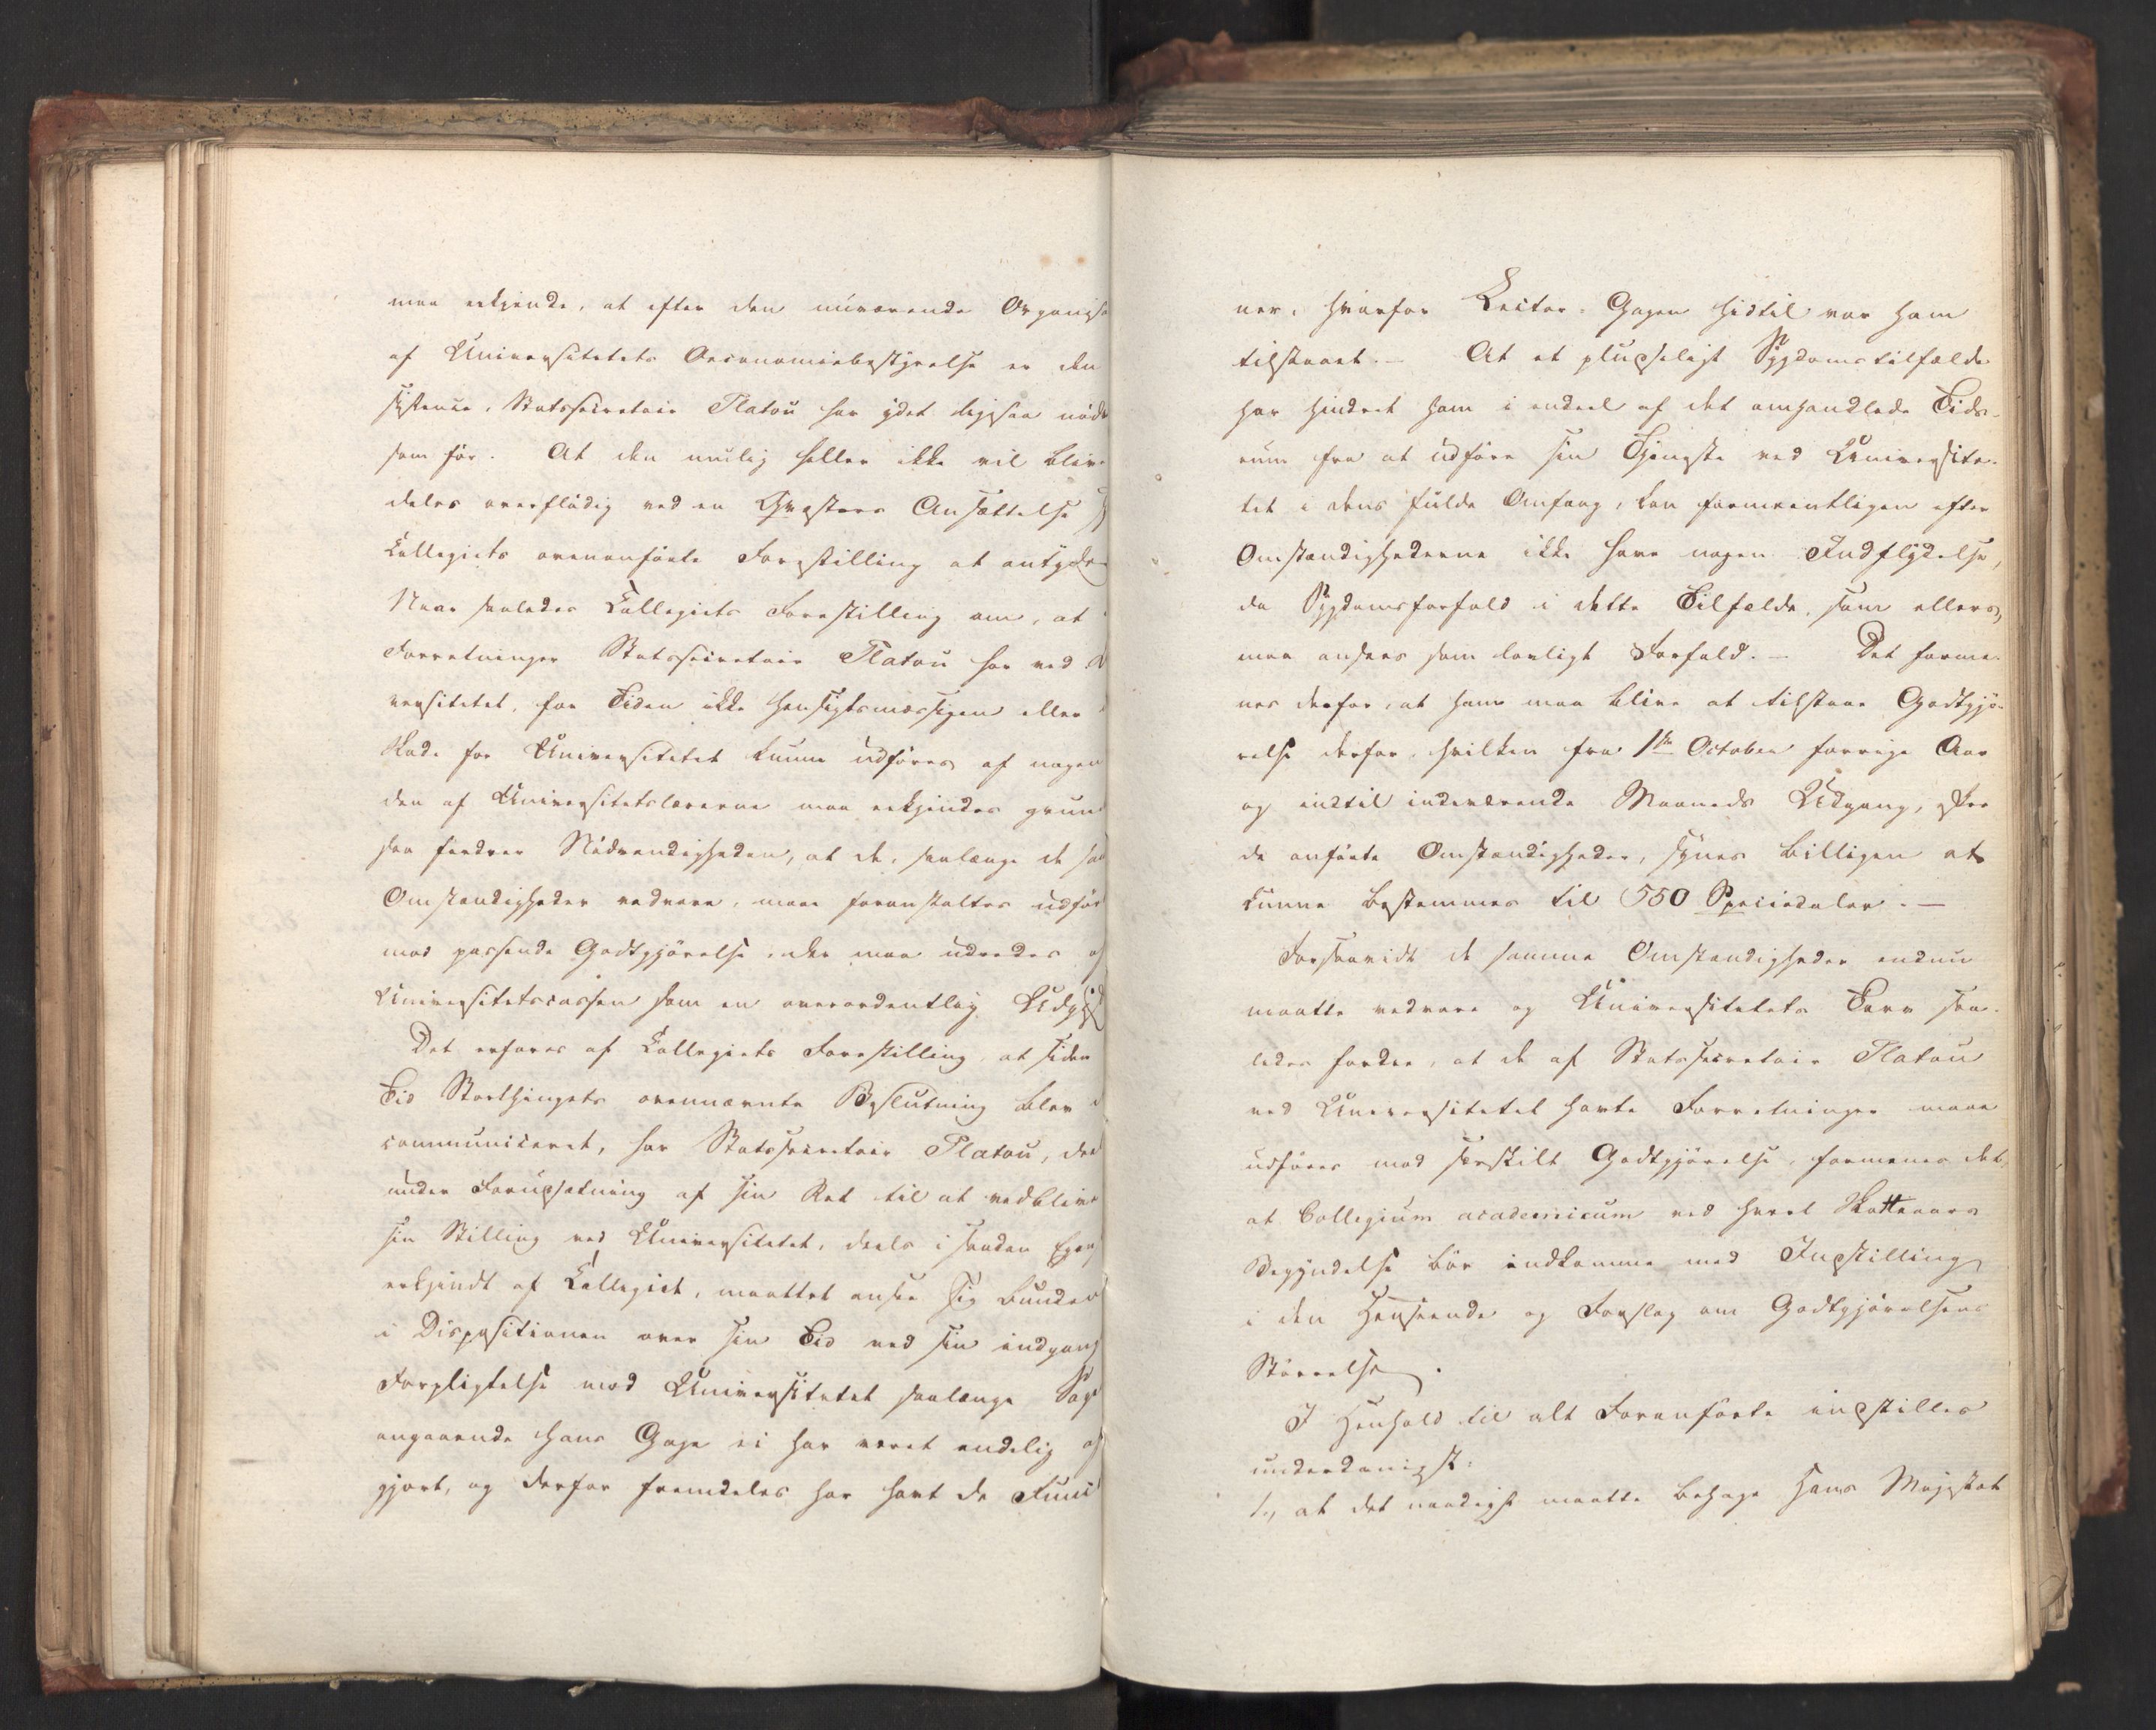 maa erkjende, at efter den nuværende Organisa
af Universitetets Oeconomiebestyrelse er den
sistence, Statssecretair Platou har ydet ligesaa nødv
som før. At den mulig heller ikke vil blive
deles overflødig ved en Qvæstors Ansættelse
Collegiets ovenanførte Forestilling at antyde
Naar saaledes Collegiets Forestilling om, at
Forretninger Statssecretair Platou har ved
versitetet, for Tiden ikke hensigtsmæssigen eller
Skade for Universitetet kunne udføres af nogen
den af Universitetslærerne maa erkjendes grund
saa fordrer Nødvendigheden, at de, saalænge de saa
Omstændigheder vedvare, maae foranstaltes udført
mod passende Godtgjørelse, der maa udredes af
Universitetscassen som en overordentlig Udgift
Det erfares af Collegiets Forestilling, at siden
Tid Storthingets ovennævnte Beslutning blev
communiceret, har Statssecretair Platou, der
under Forudsætning af sin Ret til at vedblive
sin Stilling ved Universitetet, deels i saadan Egen
erkjendt af Collegiet, maattet ansee sig bunden
i Dispositionen over sin Tid ved sin indgang
Forpligtelse mod Universitetet saalænge Sage
angaaende hans Gage ei har været endelig af
gjort, og derfor fremdeles har havt de Func
ner, hvorfor Lector-Gagen hidtil var ham
tilstaaet. – At et pludseligt Sygdomstilfælde
har hindret ham i endeel af det omhandlede Tids-
rum fra at udføre sin Tjeneste ved Universite-
tet i dens fulde Omfang, kan formeentligen efter
Omstændighederne ikke have nogen Indflydelse,
da Sygdomsforfald i dette Tilfælde, som ellers,
maa ansees som lovligt Forfald. – Det forme-
nes derfor, at ham maa blive at tilstaae Godtgjø-
relse derfor, hvilken fra 1ste October forrige Aar
og indtil indeværende Maaneds Udgang, efter
de anførte Omstændigheder, synes billigen at
kunne bestemmes til 550 Speciedaler. –
Forsaavidt de samme Omstændigheder endnu
maatte vedvare og Universitetets Tarv saa-
ledes fordre, at de af Statssecretair Platou
ved Universitetet havte Forretninger maae
udføres mod særskilt Godtgjørelse, formenes det,
at Collegium academicum ved hvert Skatteaars
Begyndelse bør indkomme med Indstilling
i den Henseende og Forslag om Godtgjørelsens
Størrelse.
I Henhold til alt Foranførte indstilles
underdanigst:
1., at det naadigst maatte behage Hans Majestæt